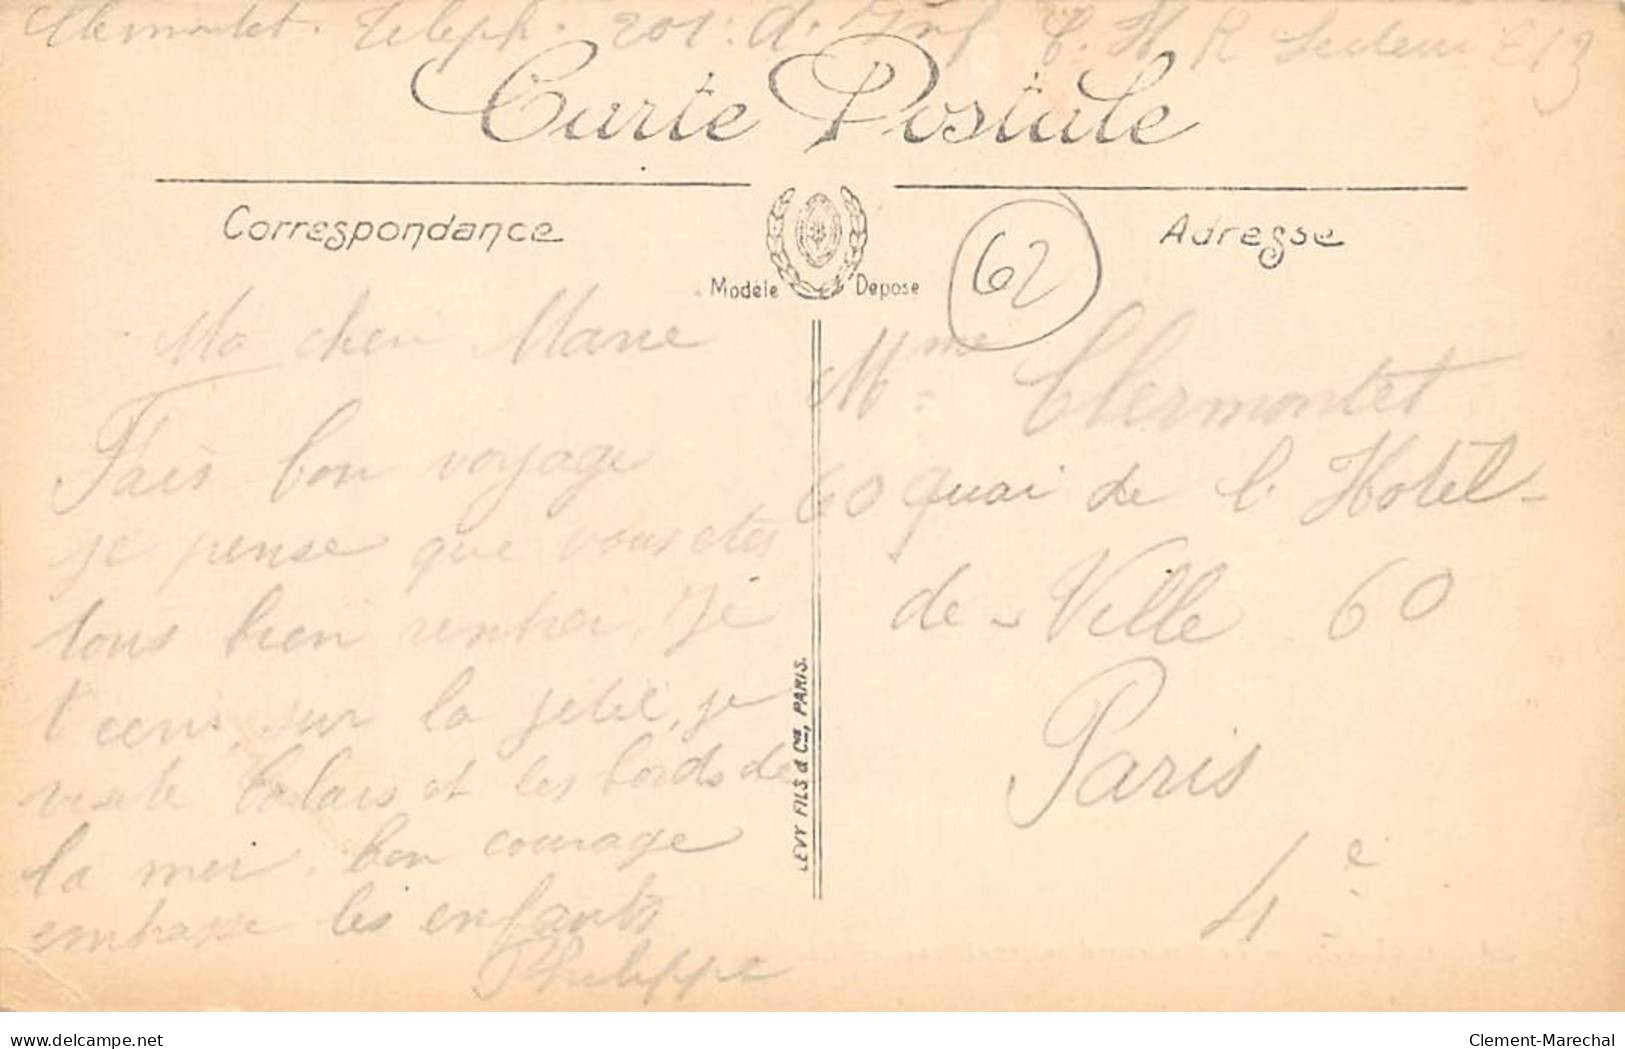 Clermontet. Teleph. 201. d. Inf C. H R Secteur 213
Carte Postale
Correspondance
Adresse
Modèle Déposé
62
Ma cher Marie
Fais bon voyage
je pense que vous etes
tous bien rentrer. Je
t'ecris sur la jetée, je
visite Calais et les bords de
la mer. bon courage
embrasse les enfants
Philippe
LEVY FILS & Cie, PARIS.
Mme Clermontet
60 quai de l'Hotel-
de-Ville 60
Paris
4e
www.delcampe.net
Clement-Marechal